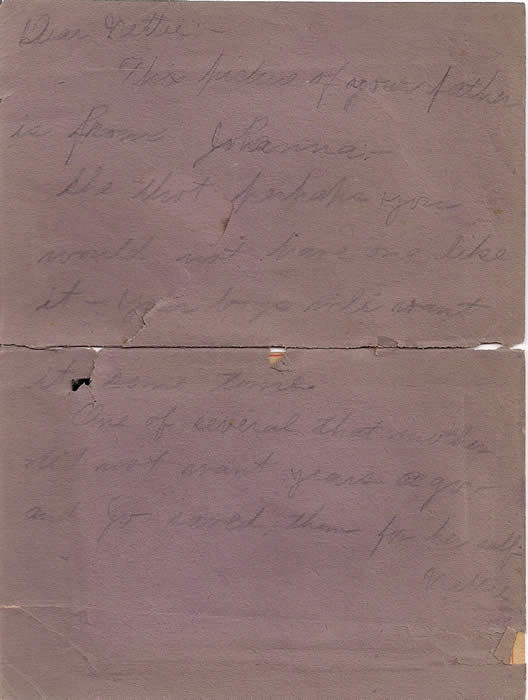 Dear Nettie:-
This picture of your father
is from Johanna.-
She thot perhaps you
would not have one like
it - your boys will want
it some time.
One of several that mother
did not want years ago-
and Jo saved them for her self.